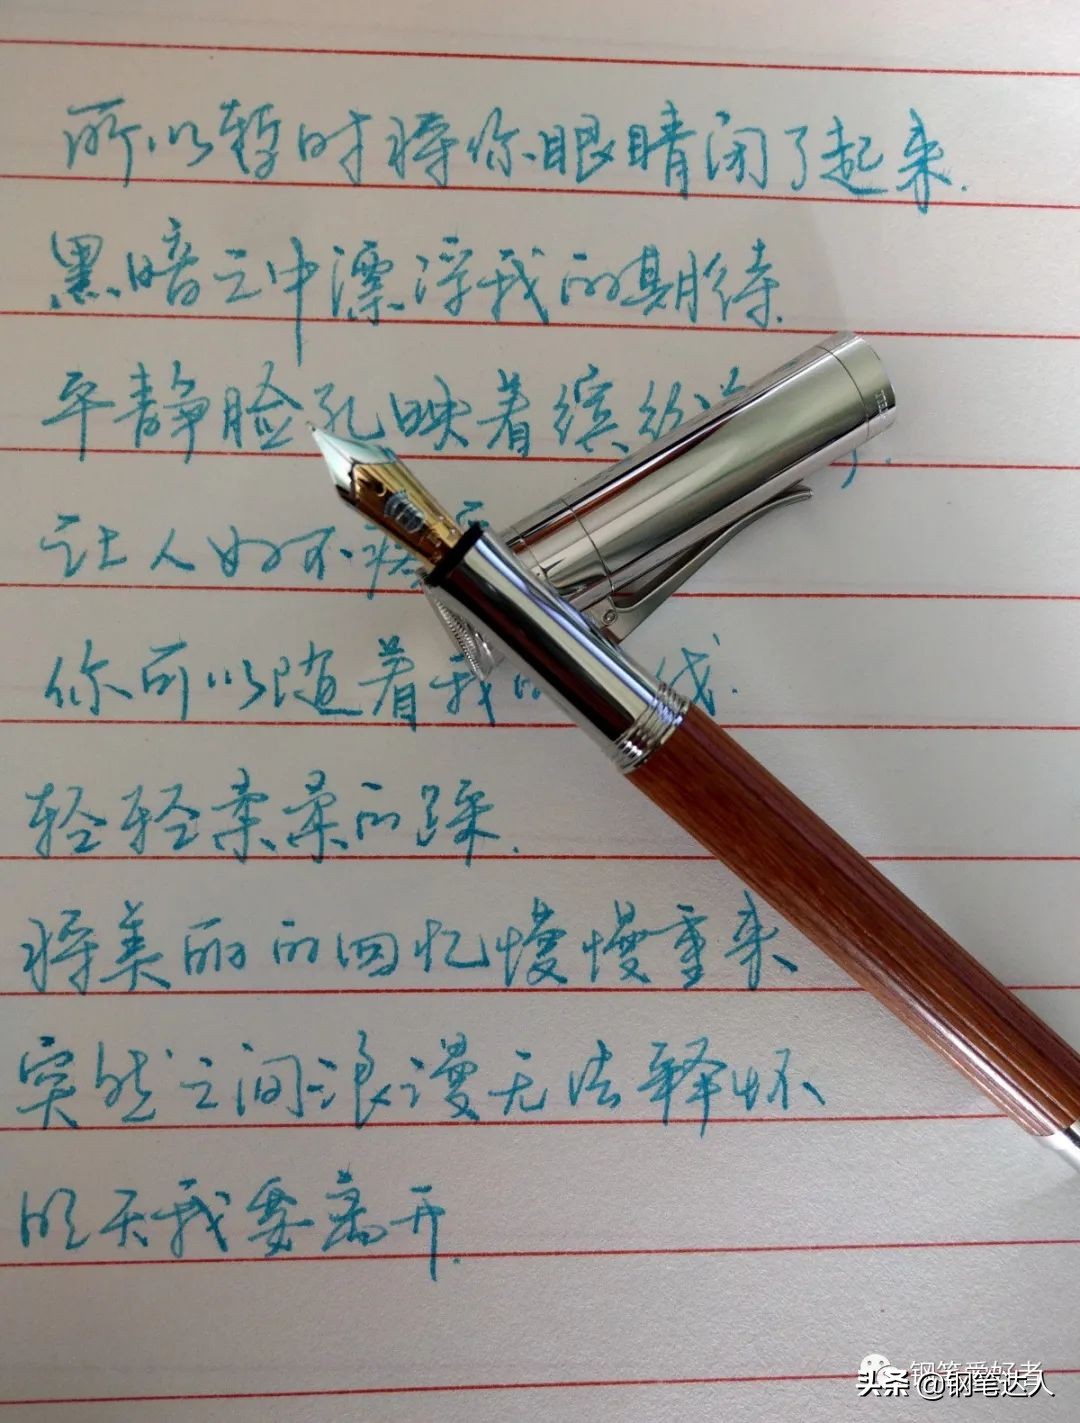 所以暂时将你眼睛闭了起来.
黑暗之中漂浮我的期待.
平静脸孔映着缤纷
让人好不疼
你可以随着我 线.
轻轻柔柔的踩.
将美丽的回忆慢慢重来
突然之间浪漫无法释怀
明天我要离开.
钢笔爱好者
头条 @钢笔达人